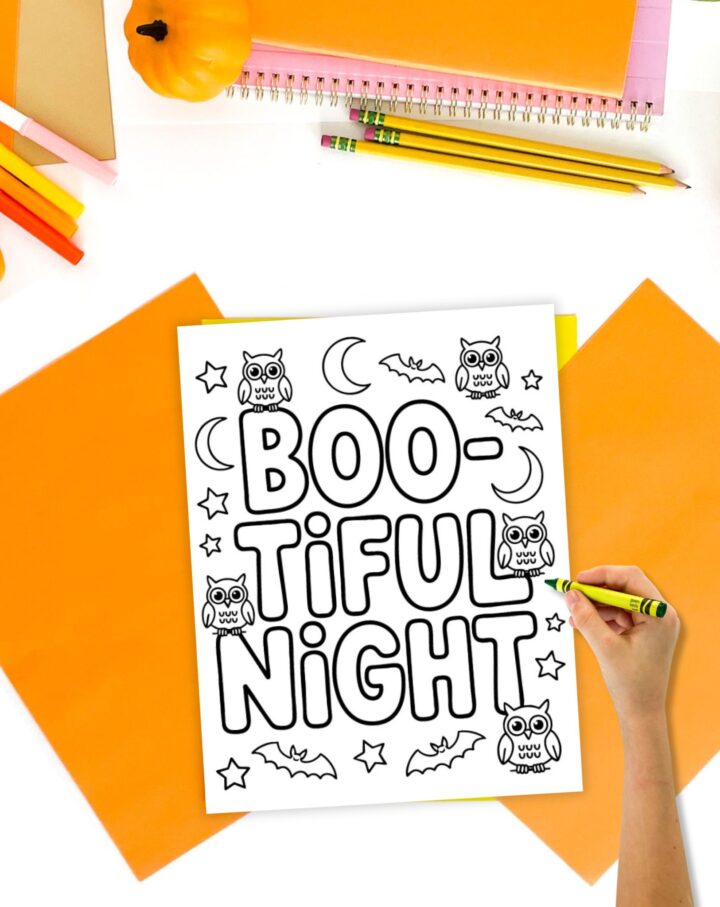 BOO-
TiFUL
NiGHT